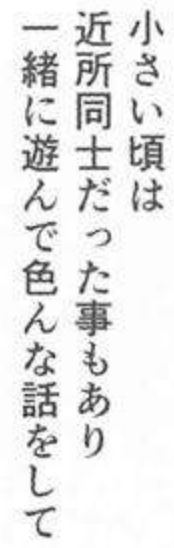 小さい頃は
近所同士だった事もあり
一緒に遊んで色んな話をして